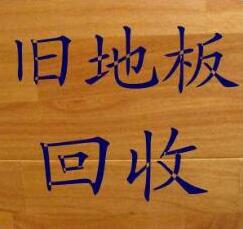 旧地板
回收